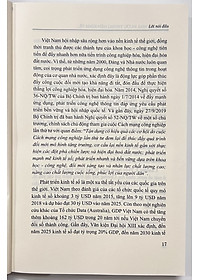 Lời nói đầu
Việt Nam hội nhập sâu rộng hơn vào nền kinh tế thế giới, đồng
thời tranh thủ được các thành tựu của khoa học - công nghệ tiên
tiến để đẩy nhanh hơn nữa tiến trình công nghiệp hóa, hiện đại hóa
đất nước. Vì thế, từ những năm 2000, Đảng và Nhà nước luôn quan
tâm, coi trọng phát triển ứng dụng công nghệ thông tin trong hoạt
động của cơ quan nhà nước, xác định đây là động lực góp phần thúc
đẩy công cuộc đổi mới, tạo khả năng đi tắt, đón đầu để thực hiện
thắng lợi công nghiệp hóa, hiện đại hóa. Năm 2014, Nghị quyết số
36-NQ/TW của Bộ Chính trị ban hành ngày 1/7/2014 về đẩy mạnh
ứng dụng, phát triển công nghệ thông tin đáp ứng yêu cầu phát triển
bền vững và hội nhập quốc tế. Và gần đây, ngày 27/9/2019
Bộ Chính trị ban hành Nghị quyết số 52-NQ/TW về một số chủ
trương, chính sách chủ động tham gia cuộc Cách mạng công nghiệp
lần thứ tư với quan điểm: "Tận dụng có hiệu quả các cơ hội do cuộc
Cách mạng công nghiệp lần thứ tư đem lại để thúc đẩy quá trình
đổi mới mô hình tăng trưởng, cơ cấu lại nền kinh tế gắn với thực
hiện các đột phá chiến lược và hiện đại hoá đất nước; phát triển
mạnh mẽ kinh tế số; phát triển nhanh và bền vững dựa trên khoa
học - công nghệ, đổi mới sáng tạo và nhân lực chất lượng cao;
nâng cao chất lượng cuộc sống, phúc lợi của người dân;..."
Phát triển kinh tế số là một xu thế tất yếu của các quốc gia trên
thế giới. Việt Nam theo đánh giá của các tổ chức quốc tế quy mô
kinh tế số khoảng 3 tỷ USD năm 2015, tăng lên 9 tỷ USD năm
2018 và dự báo đạt 30 tỷ USD vào năm 2025. Còn theo một nghiên
cứu khác của Tổ chức Data (Australia), GDP Việt Nam có thể tăng
thêm khoảng 162 tỷ USD trong 20 năm tới nếu Việt Nam chuyển
đổi số thành công. Gần đây, Văn kiện Đại hội XIII xác định, đến
năm 2025 kinh tế số đạt tỷ trọng 20% GDP, đến năm 2030 kinh tế
17